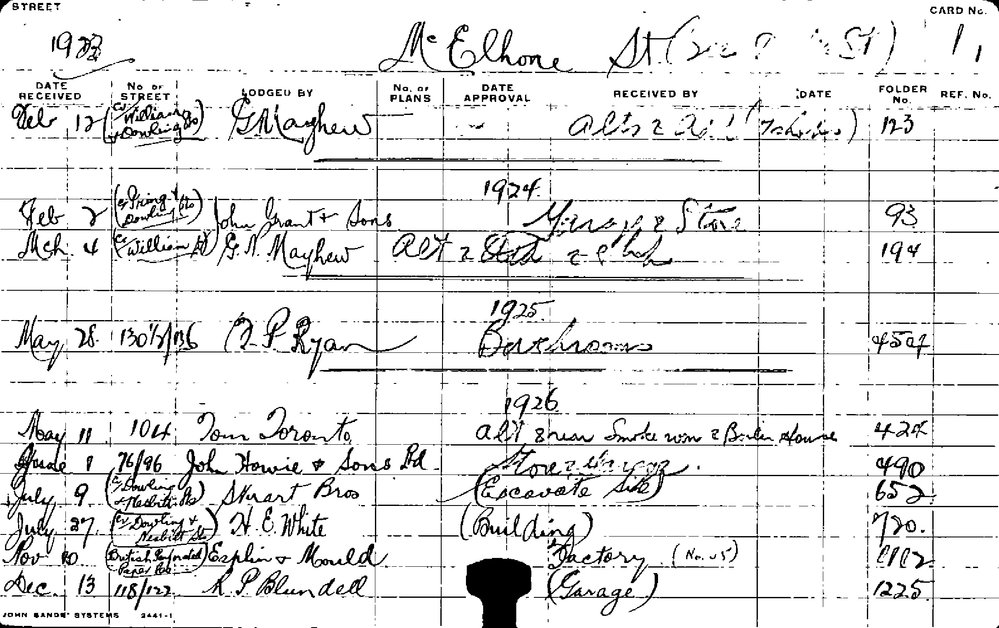 STREET
CARD No.
McElhone St 1,
DATE RECEIVED No OF STREET LODGED BY No. OF PLANS DATE APPROVAL RECEIVED BY DATE FOLDER No. REF. No.
Feb 12 (Cr William & Dowling Sts) G Mayhew Alts & Add 123
1924
Feb 2 (Cr Dowling Sts) John Grant & Sons & Store 93
Mch. 4 (Cr William St) G. N. Mayhew Alt & 194
1925
May 28. 130½/136 P Ryan Bathrooms
1926
May 11 104 Tom Toronto Alt & new Smoke room & Boiler House 424
1 76/96 John Howie & Sons Ltd. Store & Garage. 490
July 9 (Cr Dowling & Nesbitt Sts) Stuart Bros (Excavate Site) 652
July 27 (Cr Dowling & Nesbitt Sts) H. E. White (Building) 720.
Nov 10 (British Paper Co.) Esplin & Mould Factory
Dec. 13 118/122 R P Blundell (Garage) 1225
JOHN SANDS' SYSTEMS 2441-1